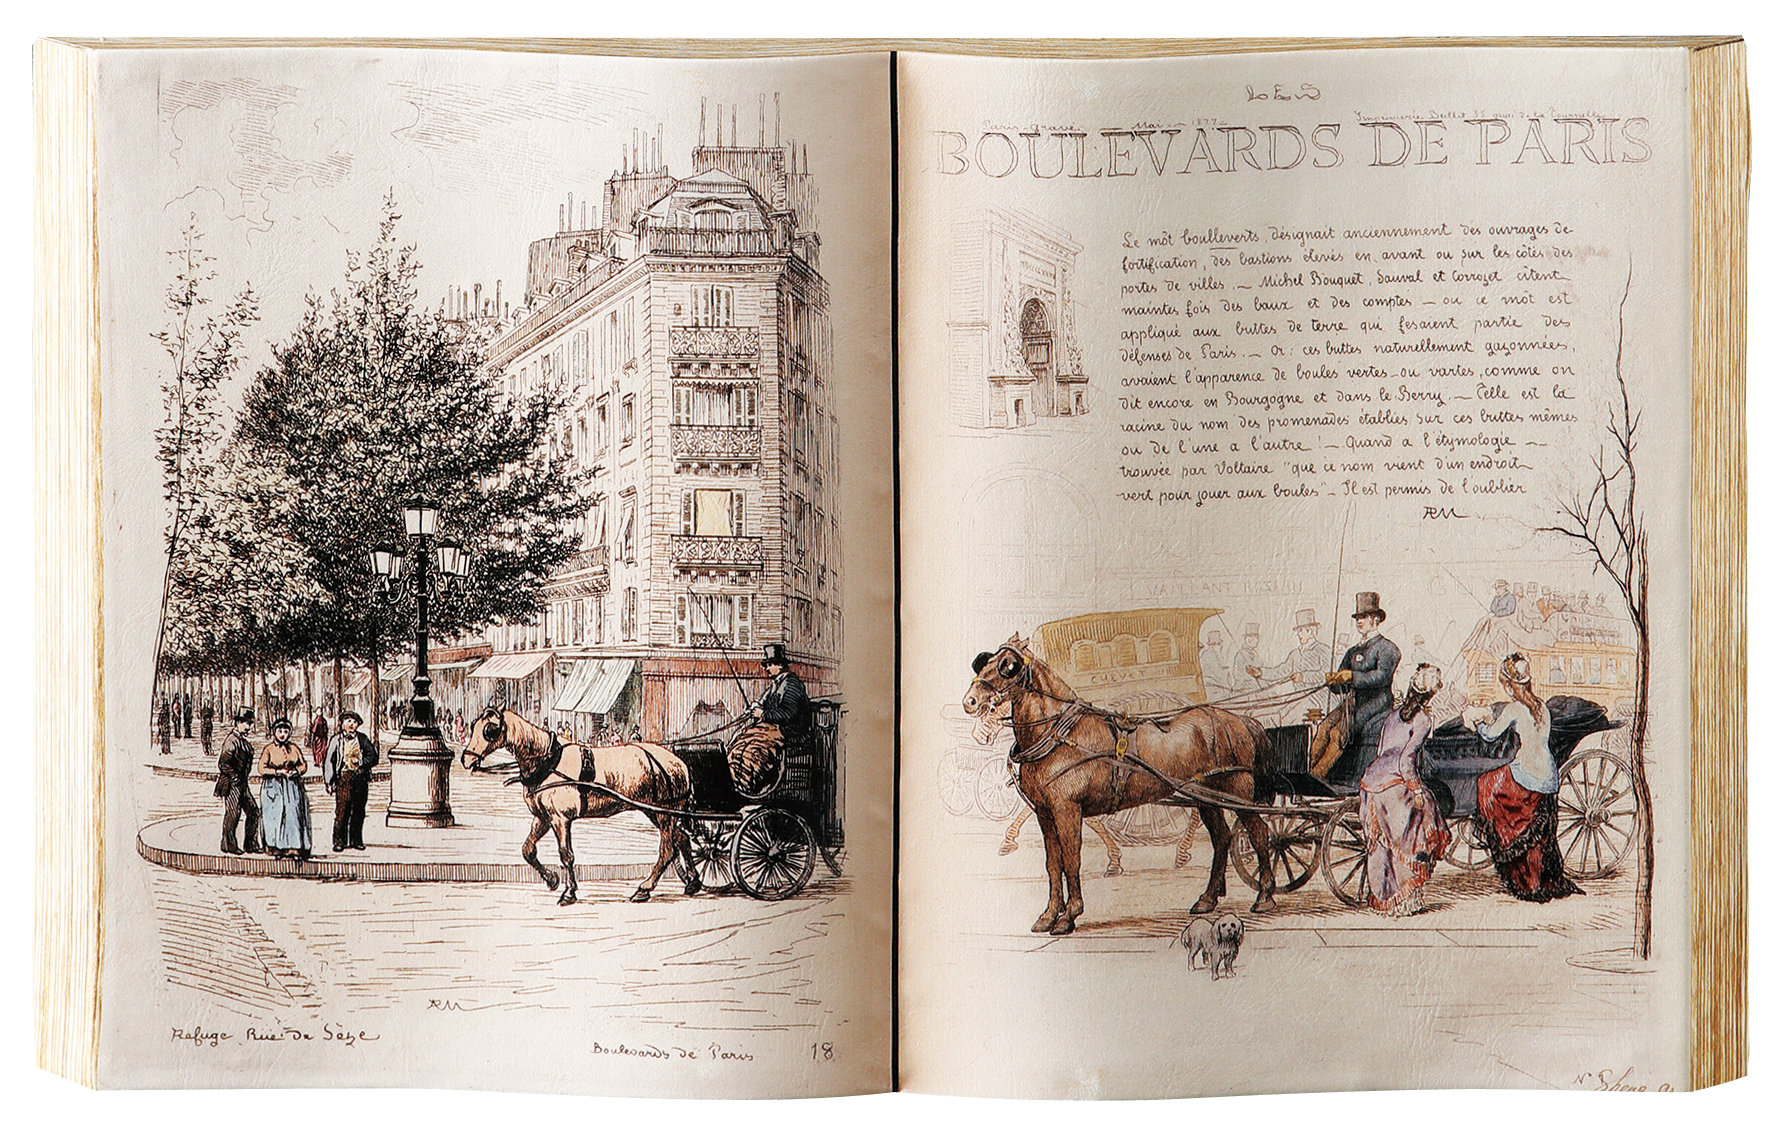 Refuge Rue de Sèze
Boulevards de Paris 18
LES
Paris gravé Mai 1877 Imprimerie 35 quai de la Tournelle
BOULEVARDS DE PARIS
Le mòt boulleverts, désignait anciennement des ouvrages de
fortification, des bastions élevés en avant ou sur les côtés des
portes de villes. — Michel Bouquet, Sauval et Corrozet citent
maintes fois des baux et des comptes — ou ce mòt est
appliqué aux buttes de terre qui fesaient partie des
défenses de Paris. — Or: ces buttes naturellement gazonnées,
avaient l'apparence de boules vertes—ou vartes, comme on
dit encore en Bourgogne et dans le Berry. — Telle est la
racine du nom des promenades établies sur ces buttes mêmes
ou de l'une a l'autre ! — Quand a l'étymologie —
trouvée par Voltaire "que ce nom vient d'un endroit
vert pour jouer aux boules" — Il est permis de l'oublier
VAILLANT
CHEVET